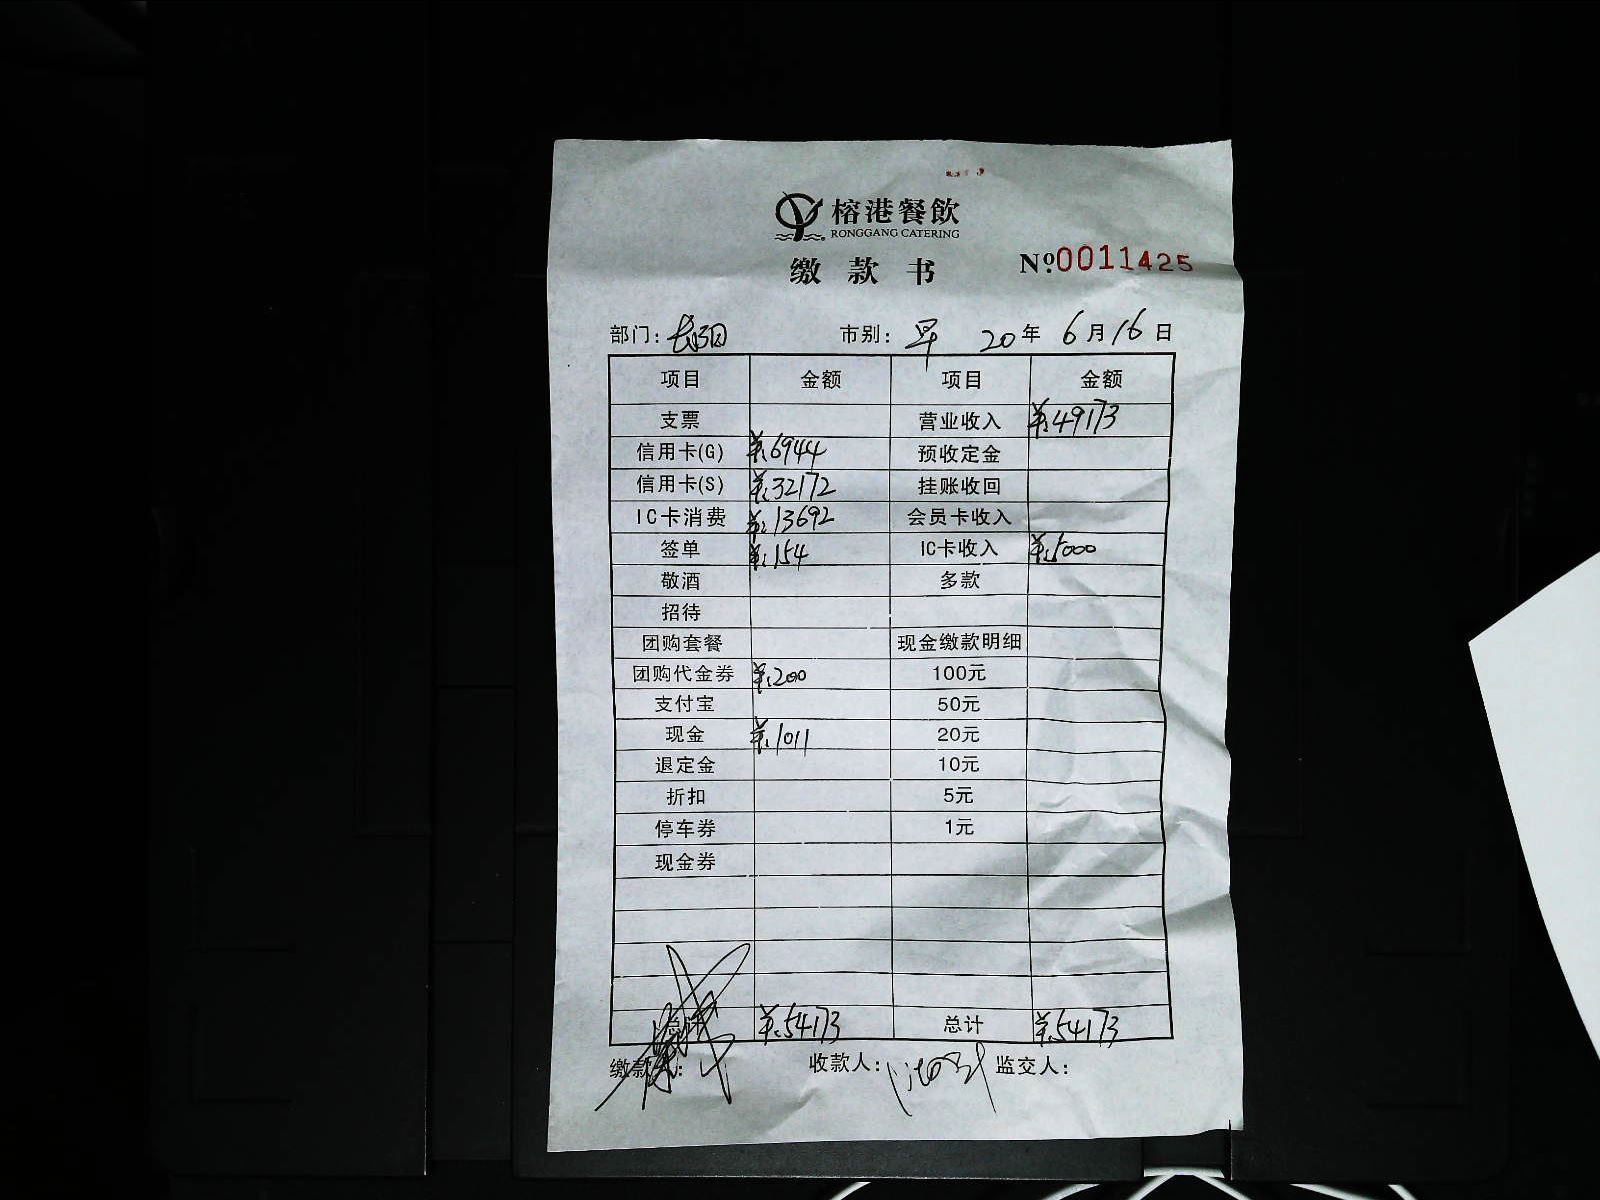 榕港餐飲
RONGGANG CATERING
缴款书 Nº0011425
部门: 市别: 早 20年 6月16日
项目 金额 项目 金额
支票 营业收入 ¥:49173
信用卡(G) ¥:6944 预收定金
信用卡(S) ¥:32172 挂账收回
IC卡消费 ¥:13692 会员卡收入
签单 ¥:154 IC卡收入 ¥:5000
敬酒 多款
招待
团购套餐 现金缴款明细
团购代金券 ¥:200 100元
支付宝 50元
现金 ¥:1011 20元
退定金 10元
折扣 5元
停车券 1元
现金券
总计 ¥:54173 总计 ¥:54173
缴款人: 收款人: 监交人: